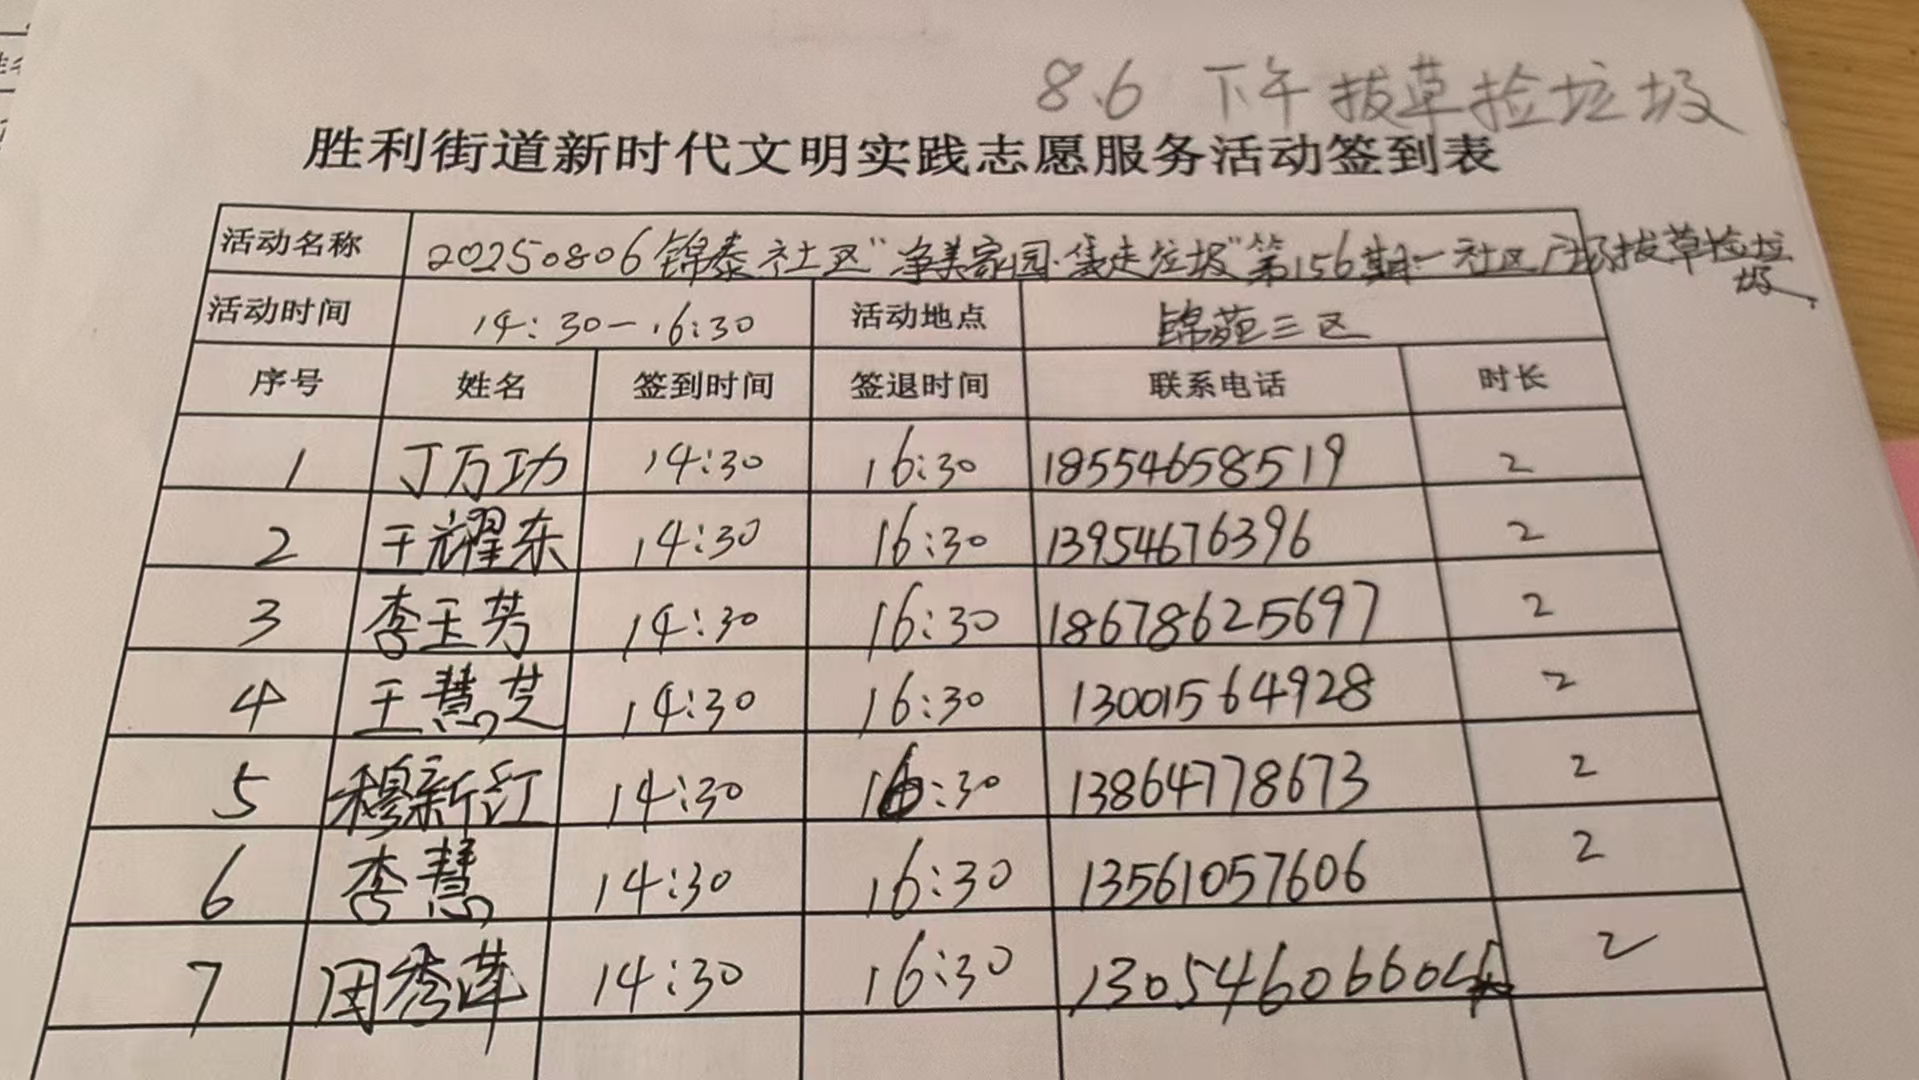 8.6 下午拔草捡垃圾
胜利街道新时代文明实践志愿服务活动签到表
活动名称 20250806锦泰社区"净美家园·袋走垃圾"第156期—社区广场拔草捡垃圾
活动时间 14:30—16:30 活动地点 锦苑三区
序号 姓名 签到时间 签退时间 联系电话 时长
1 丁万功 14:30 16:30 18554658519 2
2 王耀东 14:30 16:30 13954676396 2
3 李玉芳 14:30 16:30 18678625697 2
4 王慧芝 14:30 16:30 13001564928 2
5 穆新红 14:30 16:30 13864778673 2
6 李慧 14:30 16:30 13561057606 2
7 周秀萍 14:30 16:30 2